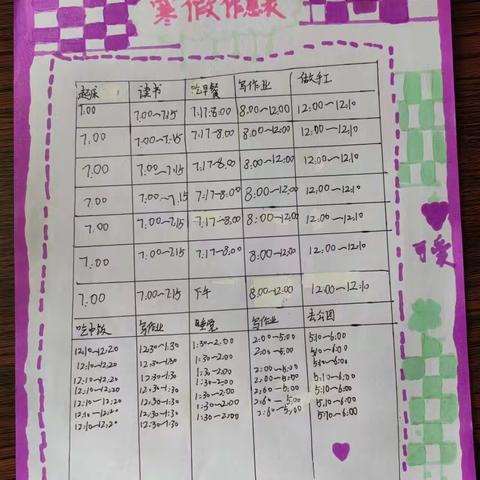 寒假作息表
起床 读书 吃早餐 写作业 做手工
7:00 7:00~7:15 7:17~8:00 8:00~12:00 12:00~12:10
7:00 7:00~7:15 7:17~8:00 8:00~12:00 12:00~12:10
7:00 7:00~7:15 7:17~8:00 8:00~12:00 12:00~12:10
7:00 7:00~7:15 7:17~8:00 8:00~12:00 12:00~12:10
7:00 7:00~7:15 7:17~8:00 8:00~12:00 12:00~12:10
7:00 7:00~7:15 7:17~8:00 8:00~12:00 12:00~12:10
7:00 7:00~7:15 下午 8:00~12:00 12:00~12:10
吃中饭 写作业 睡觉 写作业 去公园
12:10~12:20 12:30~1:30 1:30~2:00 2:00~5:00 5:10~6:00
12:10~12:20 12:30~1:30 1:30~2:00 2:00~5:00 5:10~6:00
12:10~12:20 12:30~1:30 1:30~2:00 2:00~5:00 5:10~6:00
12:10~12:20 12:30~1:30 1:30~2:00 2:00~5:00 5:10~6:00
12:10~12:20 12:30~1:30 1:30~2:00 2:00~5:00 5:10~6:00
12:10~12:20 12:30~1:30 1:30~2:00 2:00~5:00 5:10~6:00
12:10~12:20 12:30~1:30 1:30~2:00 2:00~5:00 5:10~6:00
可爱